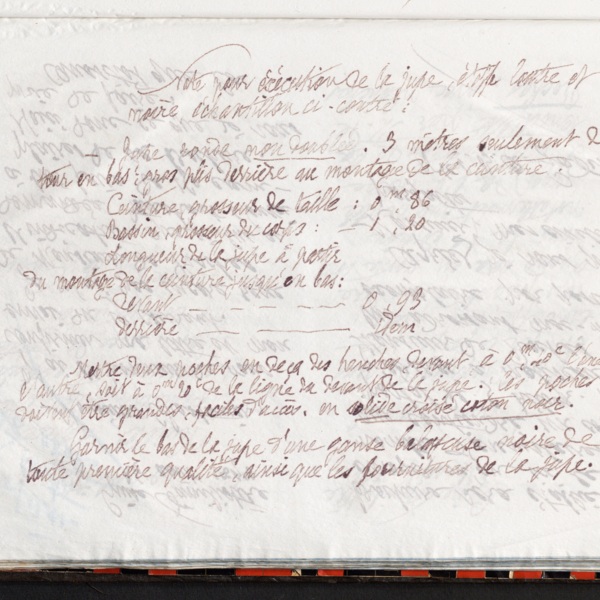 Note pour exécution de la jupe, étoffe loutre et
noire, échantillon ci-contre :
Jupe ronde non doublée. 3 mètres seulement de
tour en bas ; gros plis derrière au montage de la ceinture.
Ceinture, grosseur de taille : 0 m 86
Bassin, grosseur du corps : — 1, 20
Longueur de la jupe à partir
du montage de la ceinture jusqu'en bas :
Devant — — — 0, 93
derrière — — idem
Mettre deux poches en deça des hanches devant à 0 m
l'autre, soit à 0 m 20 c de la ligne du devant de la jupe. Les poches
doivent être grandes, faciles d'accès, en solide croisé coton noir.
Garnir le bas de la jupe d'une ganse balayeuse noire de
toute première qualité, ainsi que les fournitures de la jupe.